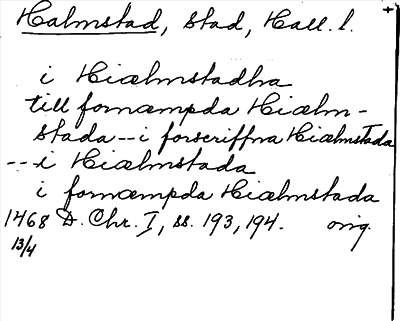 Halmstad, Stad, Hall. l.
i Hiælmstadha
till fornæmpda Hiælm-
stada -- i forscriffna Hiælmstada
--- i Hiælmstada
i fornæmpda Hiælmstada
1468 D. Chr. I, ss. 193, 194. orig.
13/4